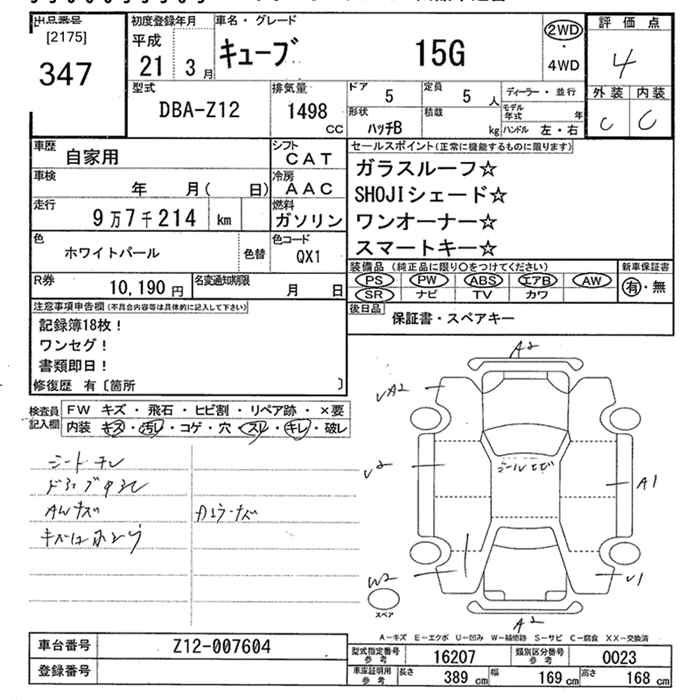 出品番号
[2175]
347
初度登録年月
平成
21 3月
車名・グレード
キューブ 15G
2WD
・
4WD
評価点
4
外装 内装
C C
型式
DBA-Z12
排気量
1498
CC
ドア 5
定員 5 人
ディーラー・並行
形状 ハッチB
積載 kg
モデル年式 年
ハンドル 左・右
車歴 自家用
シフト CAT
車検 年 月( 日)
冷房 AAC
走行 9万7千214 km
燃料 ガソリン
色 ホワイトパール 色替
色コード QX1
R券 10,190円
名変通知期限 月 日
セールスポイント(正常に機能するものに限ります)
ガラスルーフ☆
SHOJIシェード☆
ワンオーナー☆
スマートキー☆
装備品(純正品に限り○をつけてください)
新車保証書
PS PW ABS エアB AW
SR ナビ TV カワ
有・無
後日品 保証書・スペアキー
注意事項申告欄(不具合内容等は具体的に記入して下さい)
記録簿18枚!
ワンセグ!
書類即日!
修復歴 有〔箇所 〕
検査員記入欄
FW キズ・飛石・ヒビ割・リペア跡・×要
内装 キズ・汚レ・コゲ・穴・スレ・キレ・破レ
AWキズ
A2
A2
V2
A1
W2
U1
A2
スペア
A-キズ E-エクボ U-凹み W-補修跡 S-サビ C-腐食 XX-交換済
車台番号 Z12-007604
登録番号
型式指定番号 参考 16207
類別区分番号 参考 0023
車庫証明用 参考
長さ 389 cm
幅 169 cm
高さ 168 cm